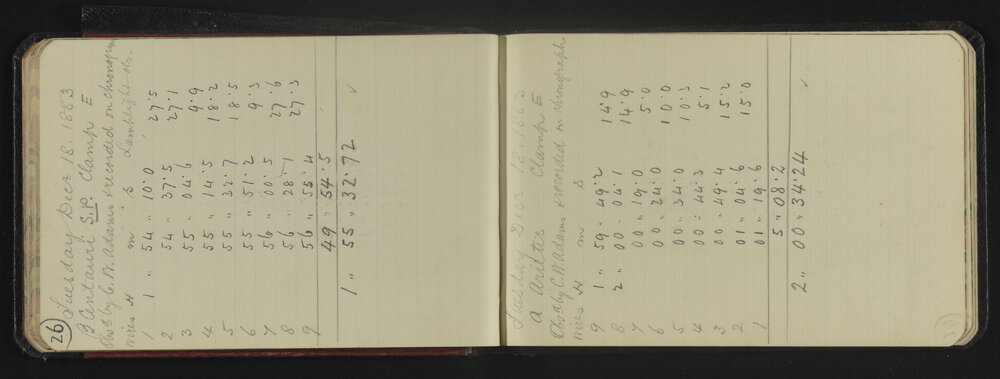 26
Tuesday Decr 18. 1883
B Centauri S.P. Clamp E
Obsd by C.W. Adams & recorded on chronograph
wires H m s Lamplight obs.
1 1 " 54 " 10.0 27.5
2 54 " 37.5 27.1
3 55 " 04.6 9.9
4 55 " 14.5 18.2
5 55 " 32.7 18.5
6 55 " 51.2 9.3
7 56 " 00.5 27.6
8 56 " 28.1 27.3
9 56 " 55.4
49 " 54.5
1 " 55 " 32.72 ✓
Tuesday Decr 18. 1883
a Arietis Clamp E
Obsd by C.W. Adams recorded on chronograph.
Wires H m s
9 1 " 59 " 49.2 14.9
8 2 " 00 " 04.1 14.9
7 00 " 19.0 5.0
6 00 " 24.0 10.0
5 00 " 34.0 10.3
4 00 " 44.3 5.1
3 00 " 49.4 15.2
2 01 " 04.6 15.0
1 01 " 19.6
5 " 08.2
2 " 00 " 34.24 ✓